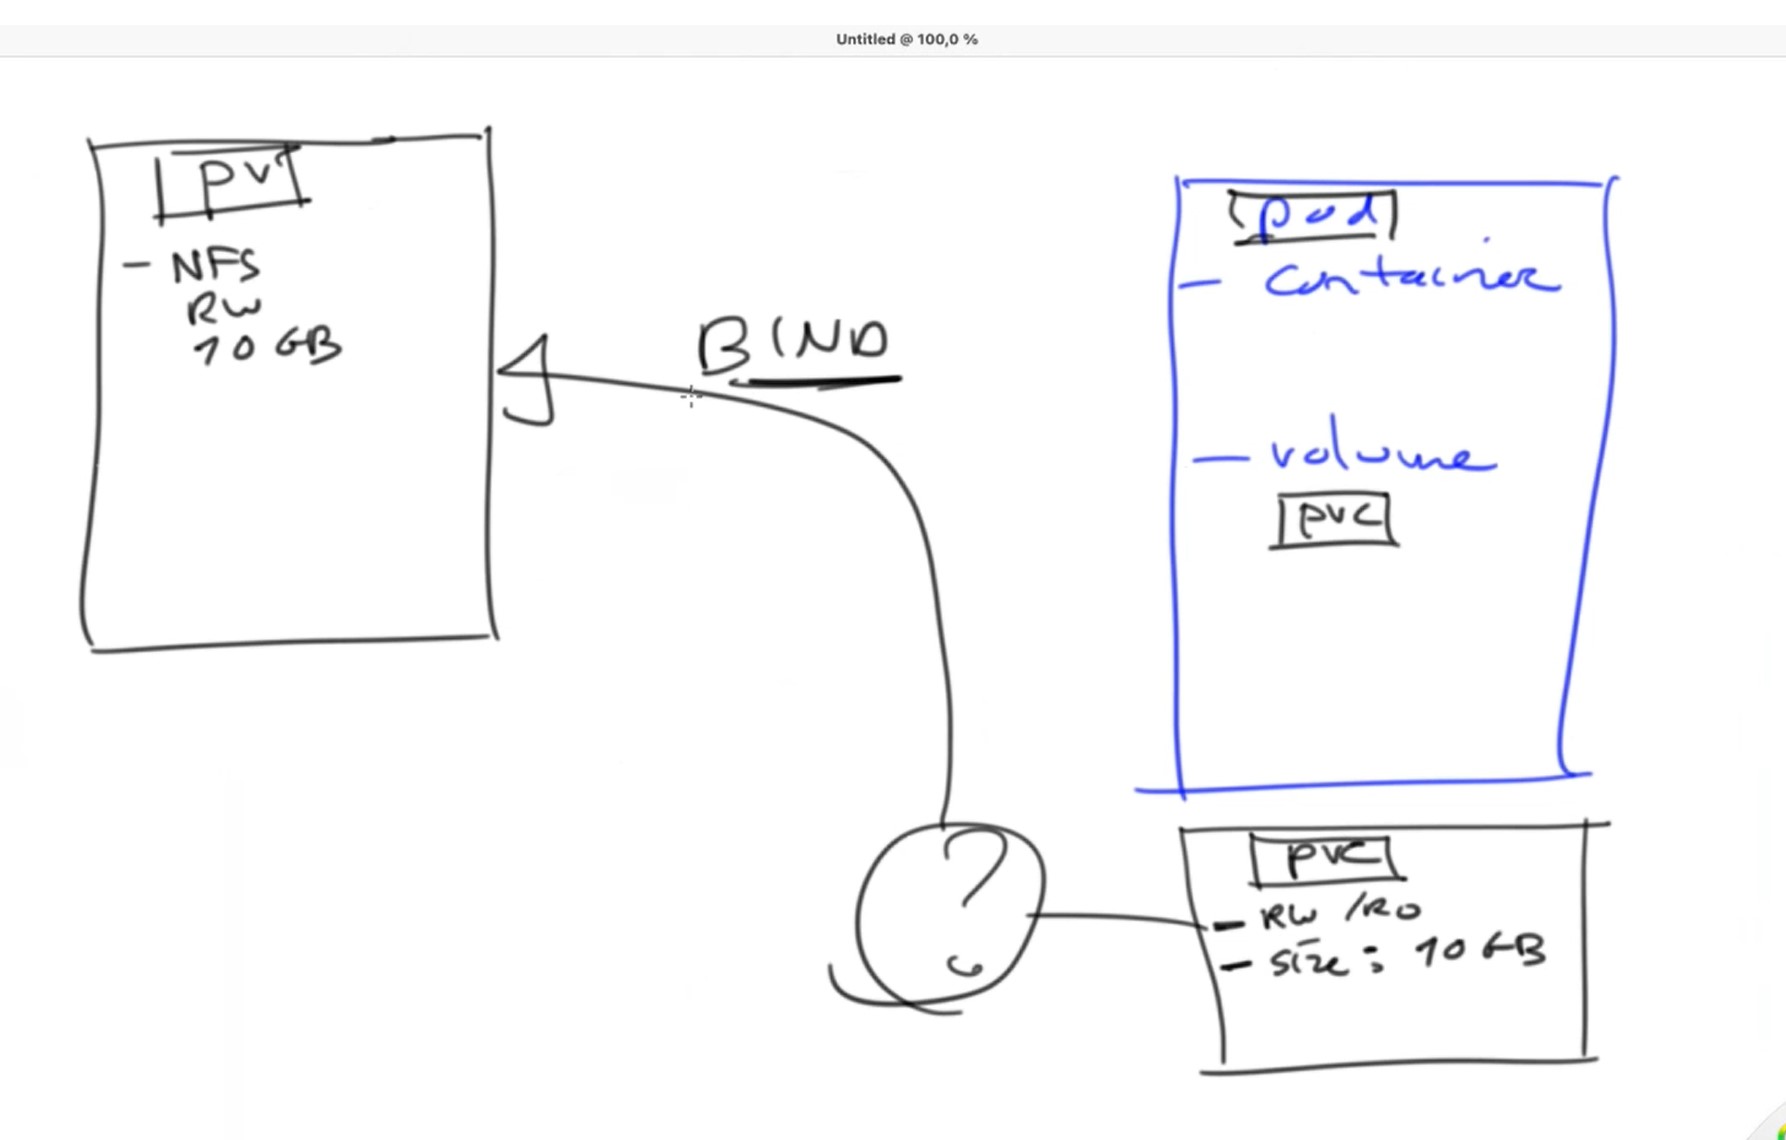 Untitled @ 100,0 %
pv
- NFS
RW
10 GB
BIND
pod
- container
- volume
pvc
?
pvc
- RW /RO
- size: 10 GB